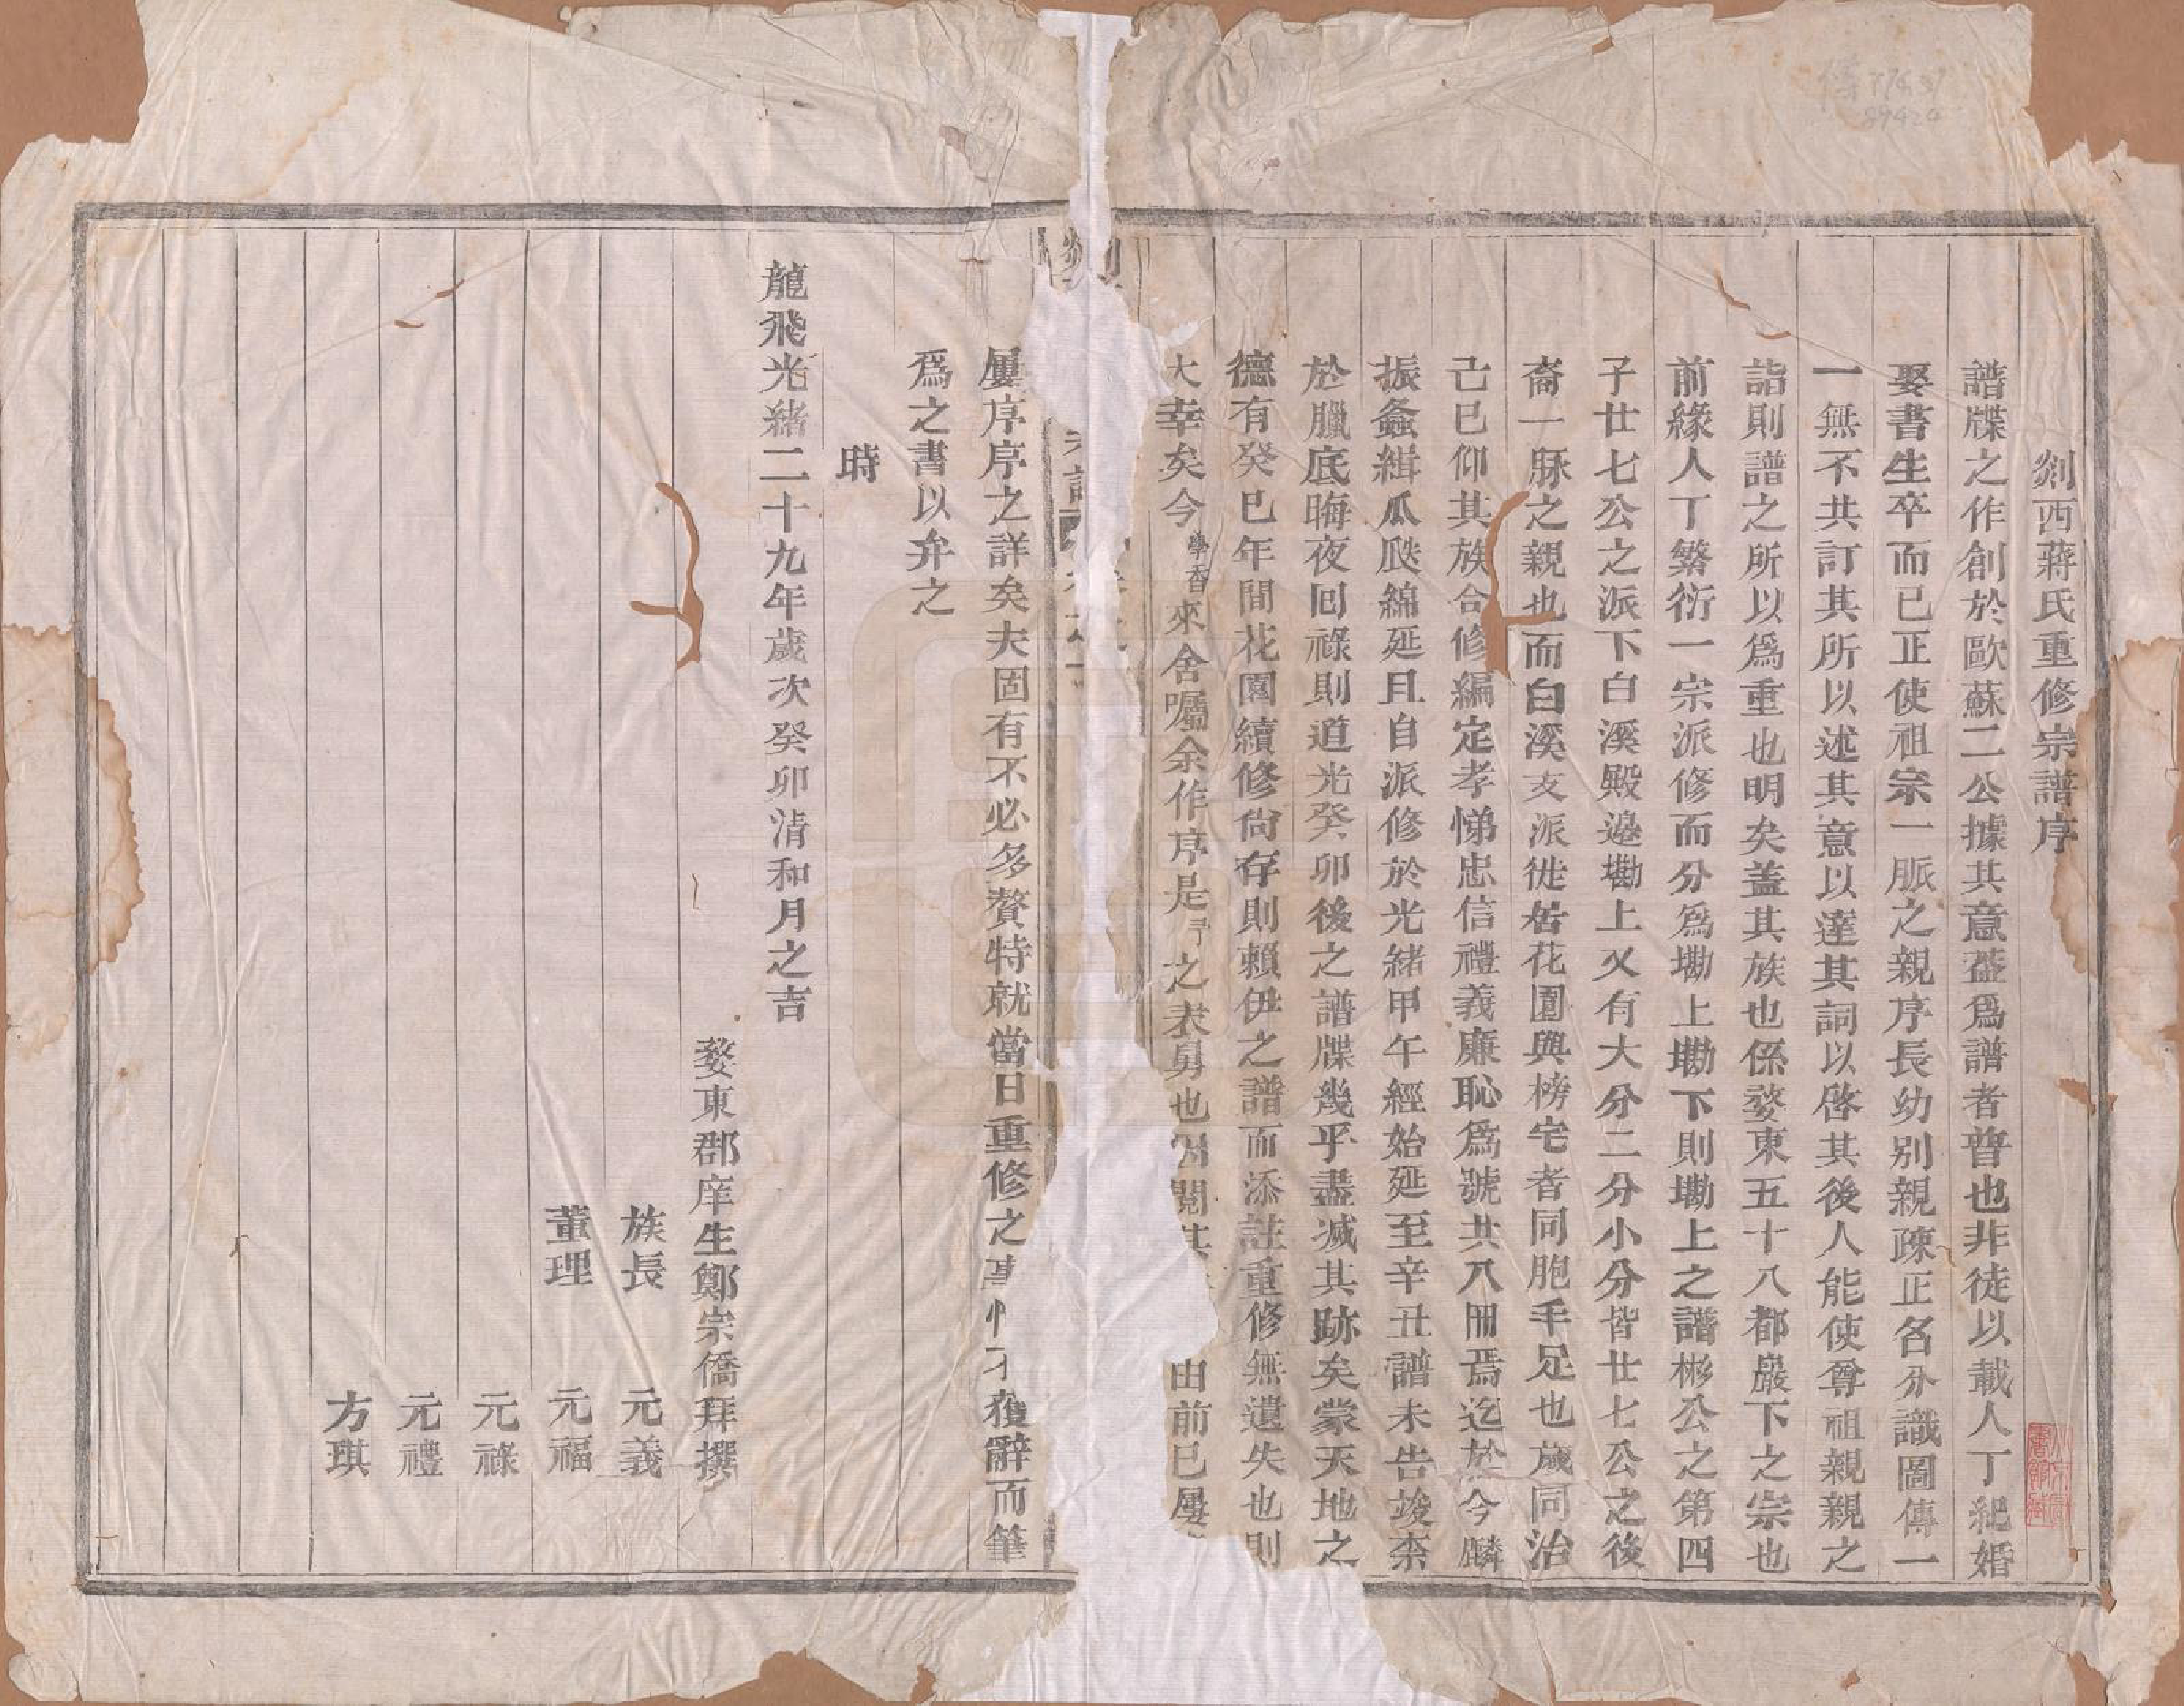 剡西蔣氏重修宗譜序
譜牒之作創於歐蘇二公據其意葢爲譜者普也非徒以載人丁紀婚
娶書生卒而已正使祖宗一脈之親序長幼别親疎正名分識圖傳一
一無不共訂其所以述其意以達其詞以啓其後人能使尊祖親親之
詣則譜之所以爲重也明矣蓋其族也係婺東五十八都巖下之宗也
前緣人丁繁衍一宗派修而分爲墈上墈下則墈上之譜彬公之第四
子廿七公之派下白溪殿邉墈上又有大分二分小分皆廿七公之後
裔一脉之親也而白溪支派徙居花園與榜宅者同胞手足也歲同治
己巳仰其族合修編定孝悌忠信禮義廉恥爲號共八冊焉迄於今麟
振螽緝瓜瓞綿延且自派修於光緒甲午經始延至辛丑譜未告竣柰
於臘底晦夜囘祿則道光癸卯後之譜牒幾乎盡滅其跡矣蒙天地之
德有癸巳年間花園續修尙存則賴伊之譜而添註重修無遺失也則
大幸矣今學香來舍囑余作序是予之表舅也因閱其由前已屢
屢序序之詳矣夫固有不必多贅特就當日重修之事獲辭而筆
爲之書以弁之
時
龍飛光緒二十九年歲次癸卯清和月之吉
婺東郡庠生鄭宗僑拜撰
族長 元義
董理 元福
元祿
元禮
方琪